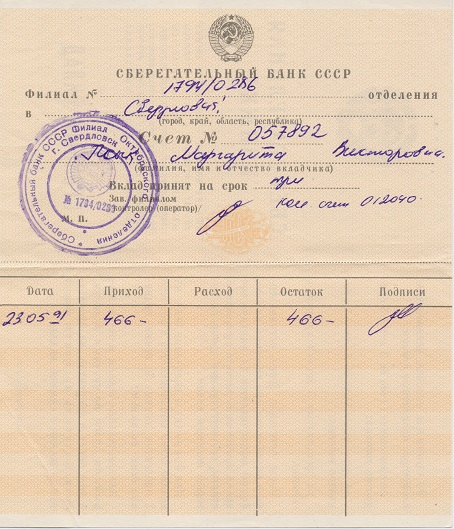 СБЕРЕГАТЕЛЬНЫЙ БАНК СССР
Филиал № 1794/0286 отделения
в Свердловай
(город, край, область, республика)
Счет № 057892
Маргарита Викторовна
(фамилия, имя и отчество вкладчика)
Вклад принят на срок три
Зав. филиалом
Контролер (оператор)/
М. П.
Сберегательный банк СССР Филиал Октябрьского отделения
г. Свердловск
Дата Приход Расход Остаток Подписи
23 05 91 466- 466-